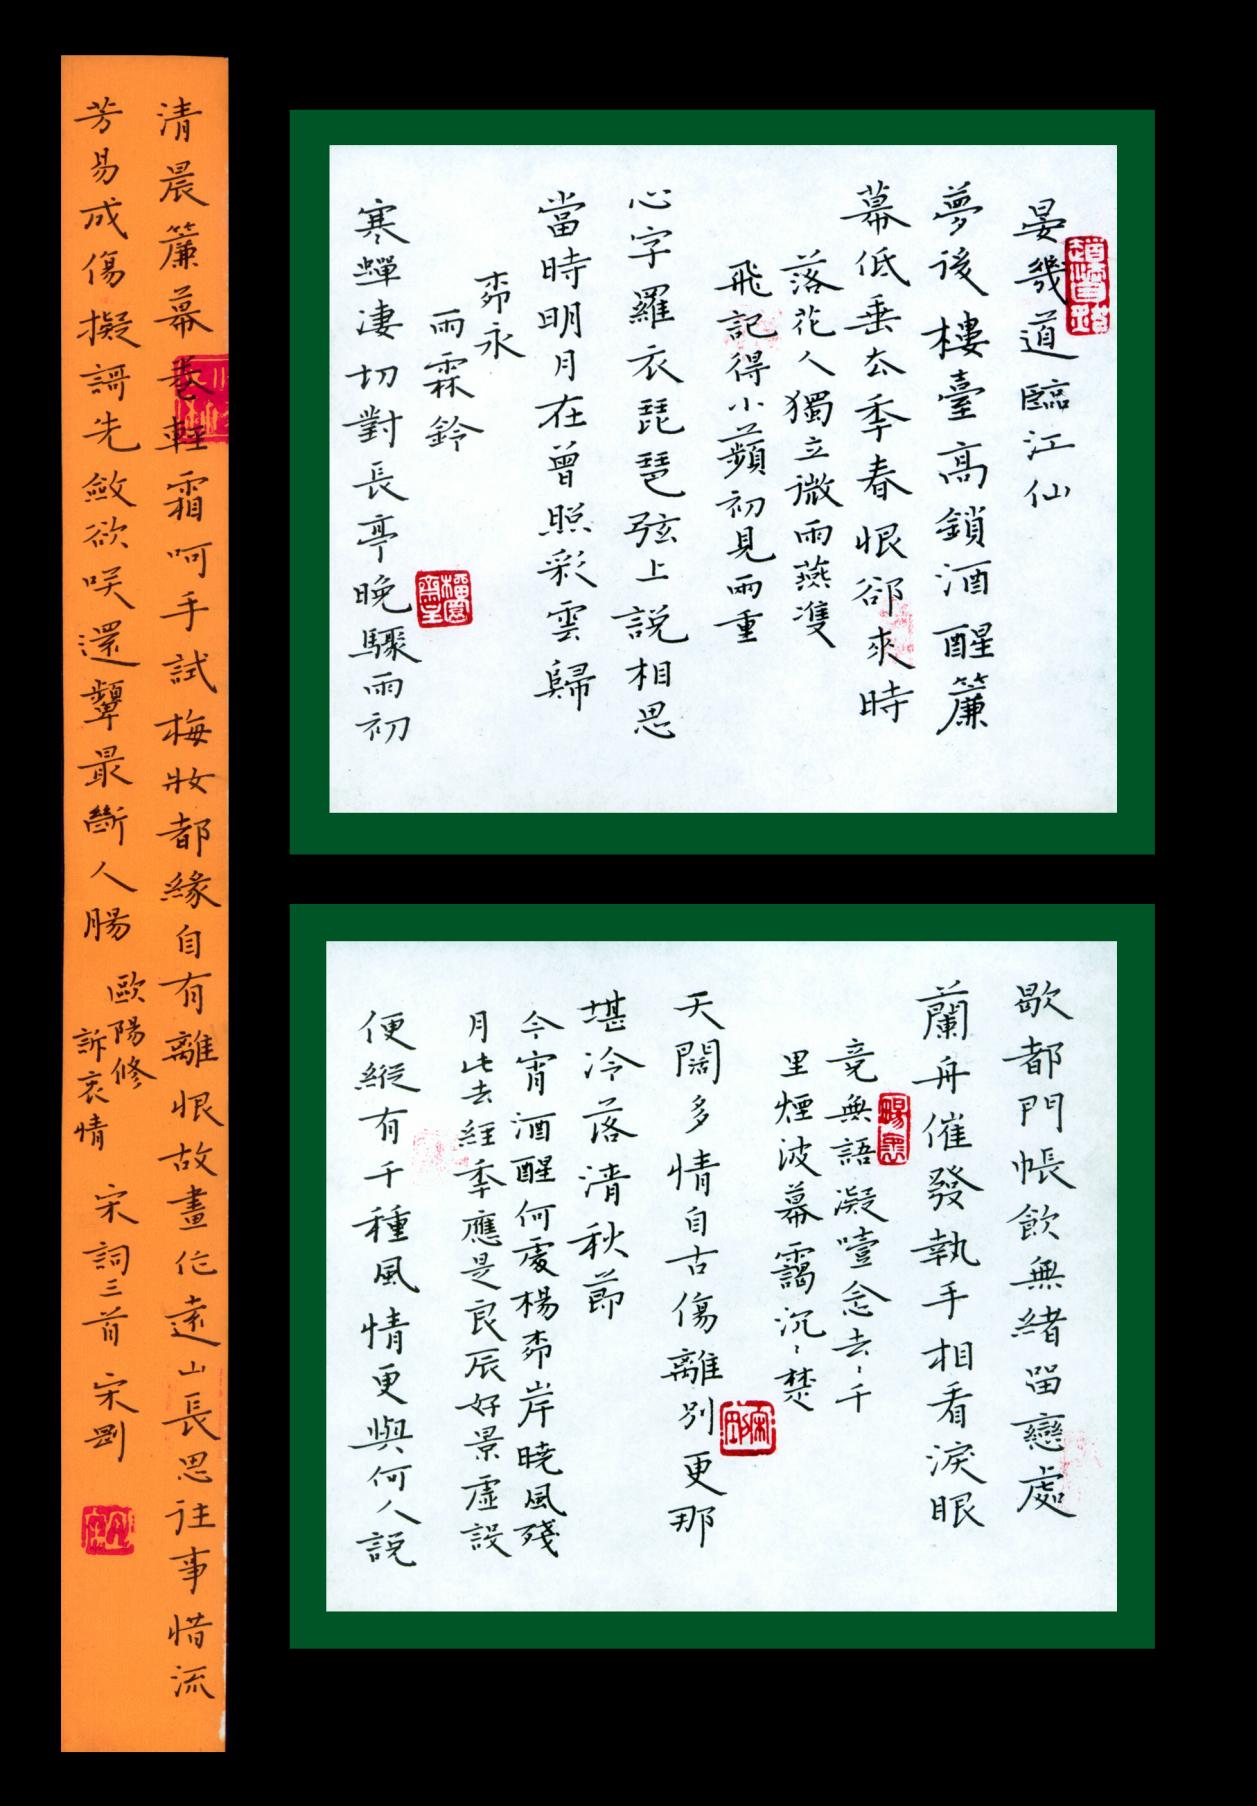 晏幾道臨江仙
夢後樓臺高鎖酒醒簾
幕低垂去季春恨卻來時
落花人獨立微雨燕雙
飛記得小蘋初見兩重
心字羅衣琵琶弦上說相思
當時明月在曾照彩雲歸
柳永
雨霖鈴
寒蟬淒切對長亭晚驟雨初
歇都門帳飲無緒留戀處
蘭舟催發執手相看淚眼
竟無語凝噎念去〻千
里煙波暮靄沉〻楚
天闊多情自古傷離別更那
堪冷落清秋節
今宵酒醒何處楊柳岸曉風殘
月此去經季應是良辰好景虛設
便縱有千種風情更與何人說
清晨簾幕卷輕霜呵手試梅妝都緣自有離恨故畫作遠山長思往事惜流
芳易成傷擬歌先斂欲咲還顰最斷人腸
歐陽修
訴衷情
宋詞三首 宋剛